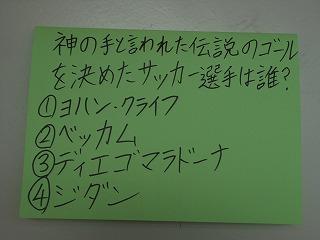 神の手と言われた伝説のゴール
を決めたサッカー選手は誰?
①ヨハン・クライフ
②ベッカム
③ディエゴマラドーナ
④ジダン